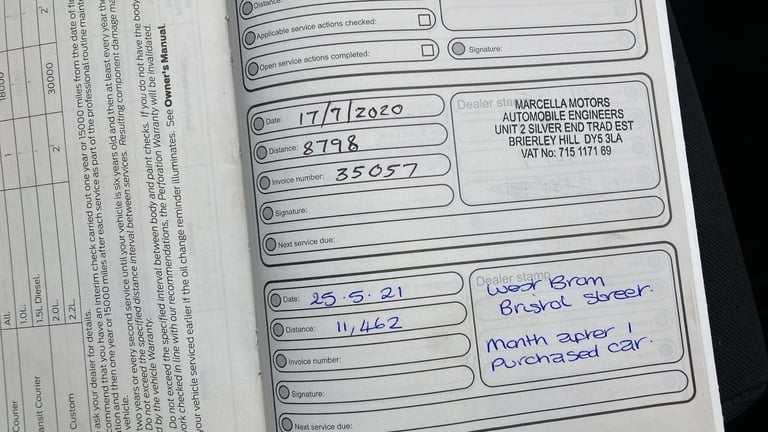 Distance:
Applicable service actions checked:
Open service actions completed:
Signature:
Date: 17/7/2020
Distance: 8798
Invoice number: 35057
Signature:
Next service due:
Dealer stamp
MARCELLA MOTORS
AUTOMOBILE ENGINEERS
UNIT 2 SILVER END TRAD EST
BRIERLEY HILL DY5 3LA
VAT No: 715 1171 69
Date: 25.5.21
Distance: 11,462
Invoice number:
Signature:
Next service due:
Dealer stamp
West Brom
Bristol Street.
Month after I
purchased car.
18000
1
2
30000
2
All.
1.0L.
1.5L Diesel.
2.0L.
2.2L.
Courier
ansit Courier
Custom
ask your dealer for details.
commend that you have an interim check carried out one year or 15000 miles from the date of
ation and then one year or 15000 miles after each service as part of the professional routine
vehicle.
two years or every second service until your vehicle is six years old and then at least every year
Do not exceed the specified distance interval between services. Resulting component damage
d by the vehicle Warranty.
Do not exceed the specified interval between body and paint checks. If you do not have the body
ork checked in line with our recommendations, the Perforation Warranty will be invalidated.
your vehicle serviced earlier if the oil change reminder illuminates. See Owner's Manual.